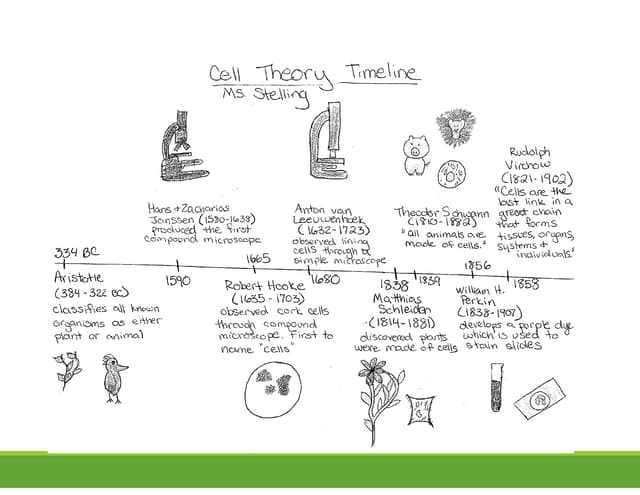 Cell Theory Timeline
Ms. Stelling
Hans + Zacharias
Janssen (1580-1638)
produced the first
compound microscope
Anton van
Leeuwenhoek
(1632-1723)
observed living
cells through a
simple microscope
Theodor Schwann
(1810-1882)
"all animals are
made of cells."
Rudolph
Virchow
(1821-1902)
"Cells are the
last link in a
great chain
that forms
tissues, organs,
systems +
individuals."
334 BC
1590
1665
1680
1838
1839
1856
1858
Aristotle
(384-322 BC)
classifies all known
organisms as either
plant or animal
Robert Hooke
(1635-1703)
observed cork cells
through compound
microscope. First to
name "cells"
Matthias
Schleiden
(1814-1881)
discovered plants
were made of cells
William H.
Perkin
(1838-1907)
develops a purple dye
which is used to
stain slides